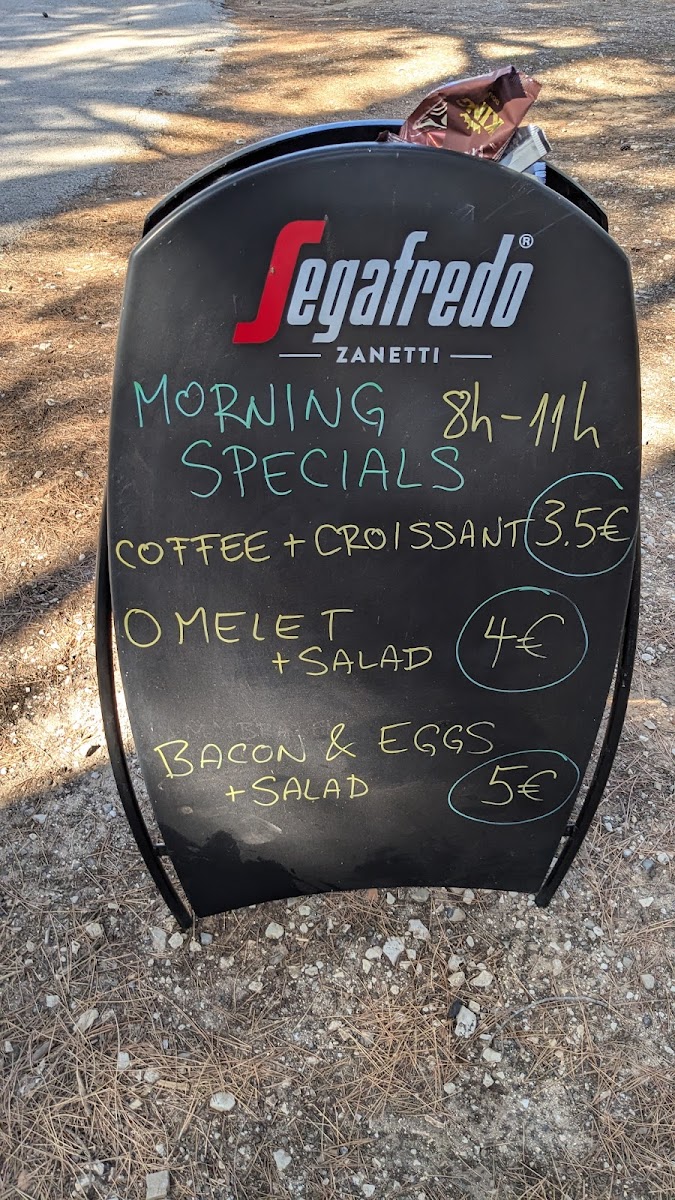 KING
Segafredo®
ZANETTI
MORNING 8h-11h
SPECIALS
COFFEE + CROISSANT 3.5€
OMELET
+ SALAD 4€
BACON & EGGS
+ SALAD 5€